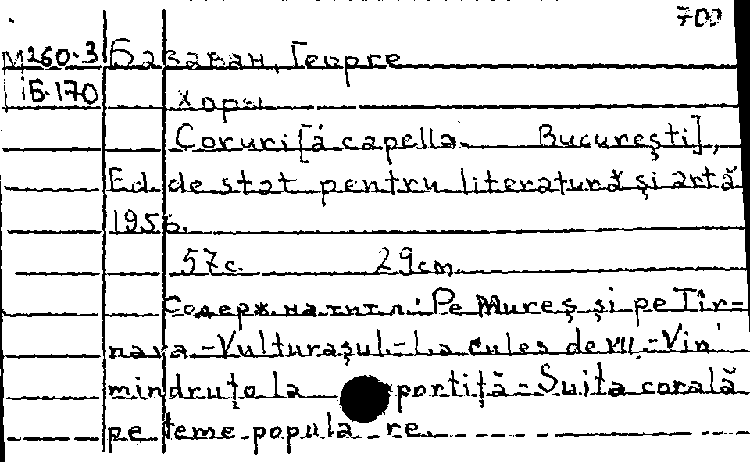 700
М260.3 Базаван, Георге
Б-170 Хоры
Coruri [á capella. București],
Ed. de stat pentru literatură și artă
1956.
57с. 29cm
Содерж. на тит. л.: Pe Mureș și pe Tîr=
nava.-Vulturașul.-La cules de vii.-Vin'
mîndruțo la portiță-Suita corală
pe teme populare.